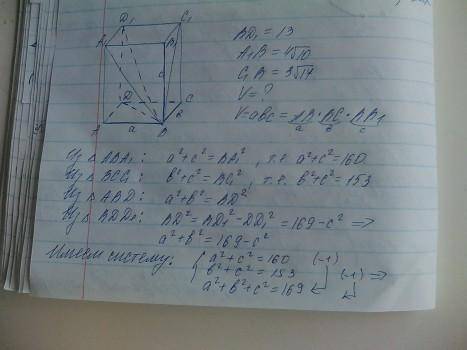 D₁ C₁
A₁ B₁
D C
A a B
c
b
BD₁ = 13
A₁B = 4√10
C₁B = 3√17
V = ?
V = abc = AB · BC · BB₁
a b c
Из △ABA₁: a² + c² = BA₁², т.е. a² + c² = 160
Из △BCC₁: b² + c² = BC₁², т.е. b² + c² = 153
Из △ABD: a² + b² = BD²
Из △BDD₁: BD² = BD₁² − DD₁² = 169 − c² ⇒
a² + b² = 169 − c²
Имеем систему: { a² + c² = 160 (-1)
b² + c² = 153 (-1) ⇒
a² + b² + c² = 169